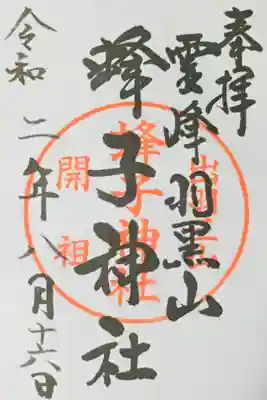 奉拝
霊峰羽黒山
蜂子神社
令和二年八月十六日
開祖
蜂子神社